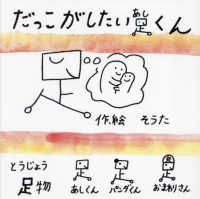 だっこがしたい足くん
あし
作、絵 そうた
とうじょう
足物
あしくん パンダくん おまわりさん